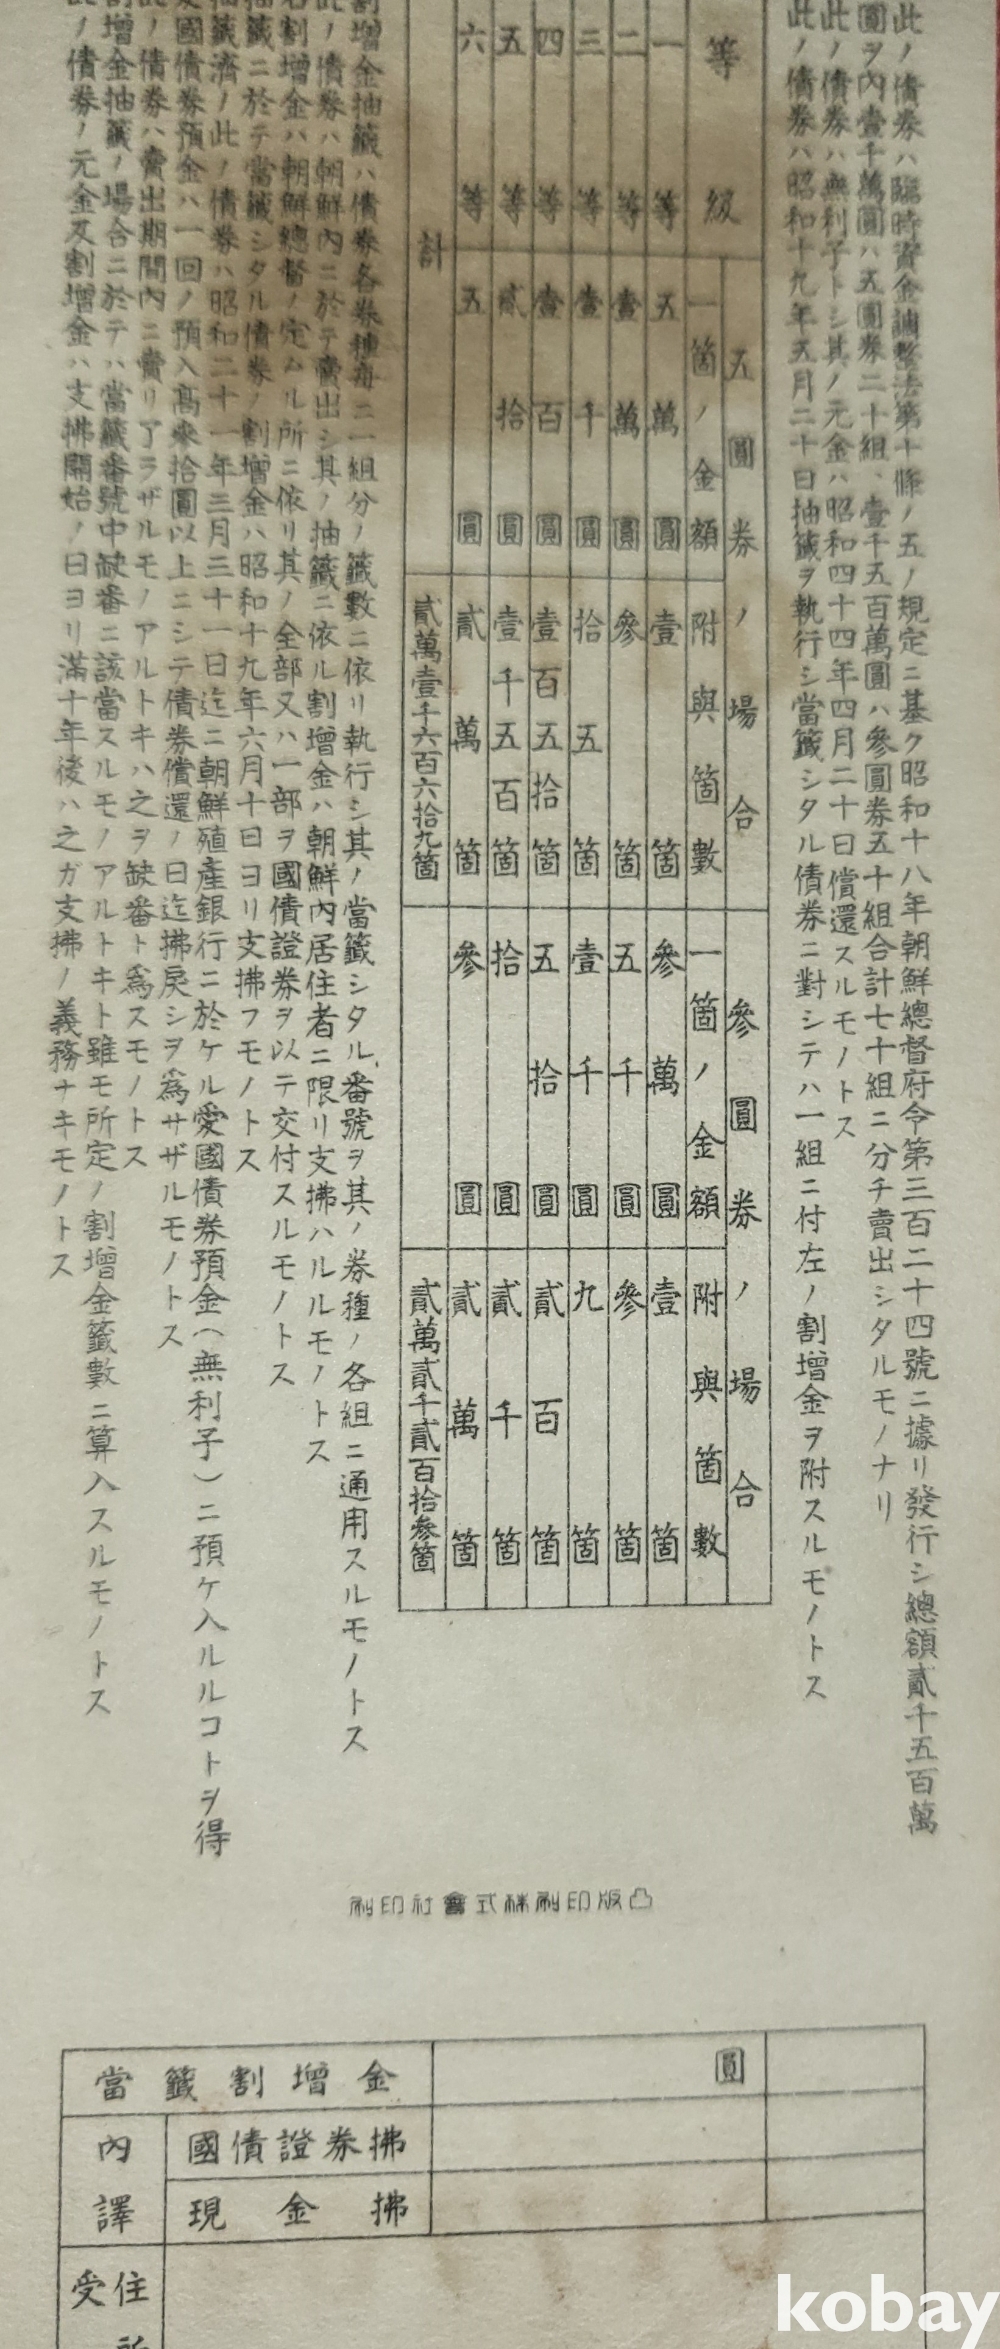 此ノ債券ハ臨時資金調整法第十條ノ五ノ規定ニ基ク昭和十八年朝鮮總督府令第三百二十四號ニ據リ發行シ總額貳千五百萬
圓ヲ內壹千萬圓ハ五圓券二十組、壹千五百萬圓ハ參圓券五十組合計七十組ニ分チ賣出シタルモノナリ
此ノ債券ハ無利子トシ其ノ元金ハ昭和四十四年四月二十日償還スルモノトス
此ノ債券ハ昭和十九年五月二十日抽籤ヲ執行シ當籤シタル債券ニ對シテハ一組ニ付左ノ割增金ヲ附スルモノトス
等級 五圓券ノ場合 參圓券ノ場合
一箇ノ金額 附與箇數 一箇ノ金額 附與箇數
一等 五萬圓 壹箇 參萬圓 壹箇
二等 壹萬圓 參箇 五千圓 參箇
三等 壹千圓 拾五箇 壹千圓 九箇
四等 壹百圓 壹百五拾箇 五拾圓 貳百箇
五等 貳拾圓 壹千五百箇 拾圓 貳千箇
六等 五圓 貳萬箇 參圓 貳萬箇
計 貳萬壹千六百六拾九箇 貳萬貳千貳百拾參箇
割增金抽籤ハ債券各券種每ニ一組分ノ籤數ニ依リ執行シ其ノ當籤シタル番號ヲ其ノ券種ノ各組ニ通用スルモノトス
此ノ債券ハ朝鮮內ニ於テ賣出シ其ノ抽籤ニ依ル割增金ハ朝鮮內居住者ニ限リ支拂ハルルモノトス
右割增金ハ朝鮮總督ノ定ムル所ニ依リ其ノ全部又ハ一部ヲ國債證券ヲ以テ交付スルモノトス
抽籤ニ於テ當籤シタル債券ノ割增金ハ昭和十九年六月十日ヨリ支拂フモノトス
抽籤濟ノ此ノ債券ハ昭和二十一年三月三十一日迄ニ朝鮮殖產銀行ニ於ケル愛國債券預金(無利子)ニ預ケ入ルルコトヲ得
愛國債券預金ハ一回ノ預入高來拾圓以上ニシテ債券償還ノ日迄拂戾シヲ爲サザルモノトス
此ノ債券ハ賣出期間內ニ賣リ了ラザルモノアルトキハ之ヲ缺番ト爲スモノトス
割增金抽籤ノ場合ニ於テハ當籤番號中缺番ニ該當スルモノアルトキト雖モ所定ノ割增金籤數ニ算入スルモノトス
此ノ債券ノ元金及割增金ハ支拂開始ノ日ヨリ滿十年後ハ之ガ支拂ノ義務ナキモノトス
刷印社會式株刷印版凸
當籤割增金 圓
內譯 國債證券拂
現金拂
受 住所
kobay